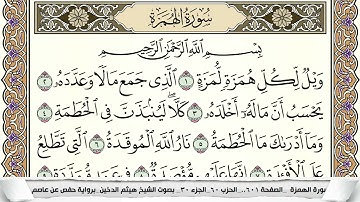 سُورَةُ الهُمَزَةِ
بِسْمِ اللَّهِ الرَّحْمَٰنِ الرَّحِيمِ
وَيْلٌ لِّكُلِّ هُمَزَةٍ لُّمَزَةٍ ١ الَّذِي جَمَعَ مَالًا وَعَدَّدَهُ ٢
يَحْسَبُ أَنَّ مَالَهُ أَخْلَدَهُ ٣ كَلَّا لَيُنبَذَنَّ فِي الْحُطَمَةِ ٤
وَمَا أَدْرَاكَ مَا الْحُطَمَةُ ٥ نَارُ اللَّهِ الْمُوقَدَةُ ٦ الَّتِي تَطَّلِعُ
عَلَى الْأَفْئِدَةِ ٧ إِنَّهَا عَلَيْهِم مُّؤْصَدَةٌ ٨
سورة الهمزة _ الصفحة ٦٠١_ الحزب ٦٠_الجزء ٣٠_ بصوت الشيخ هيثم الدخين_ برواية حفص عن عاصم